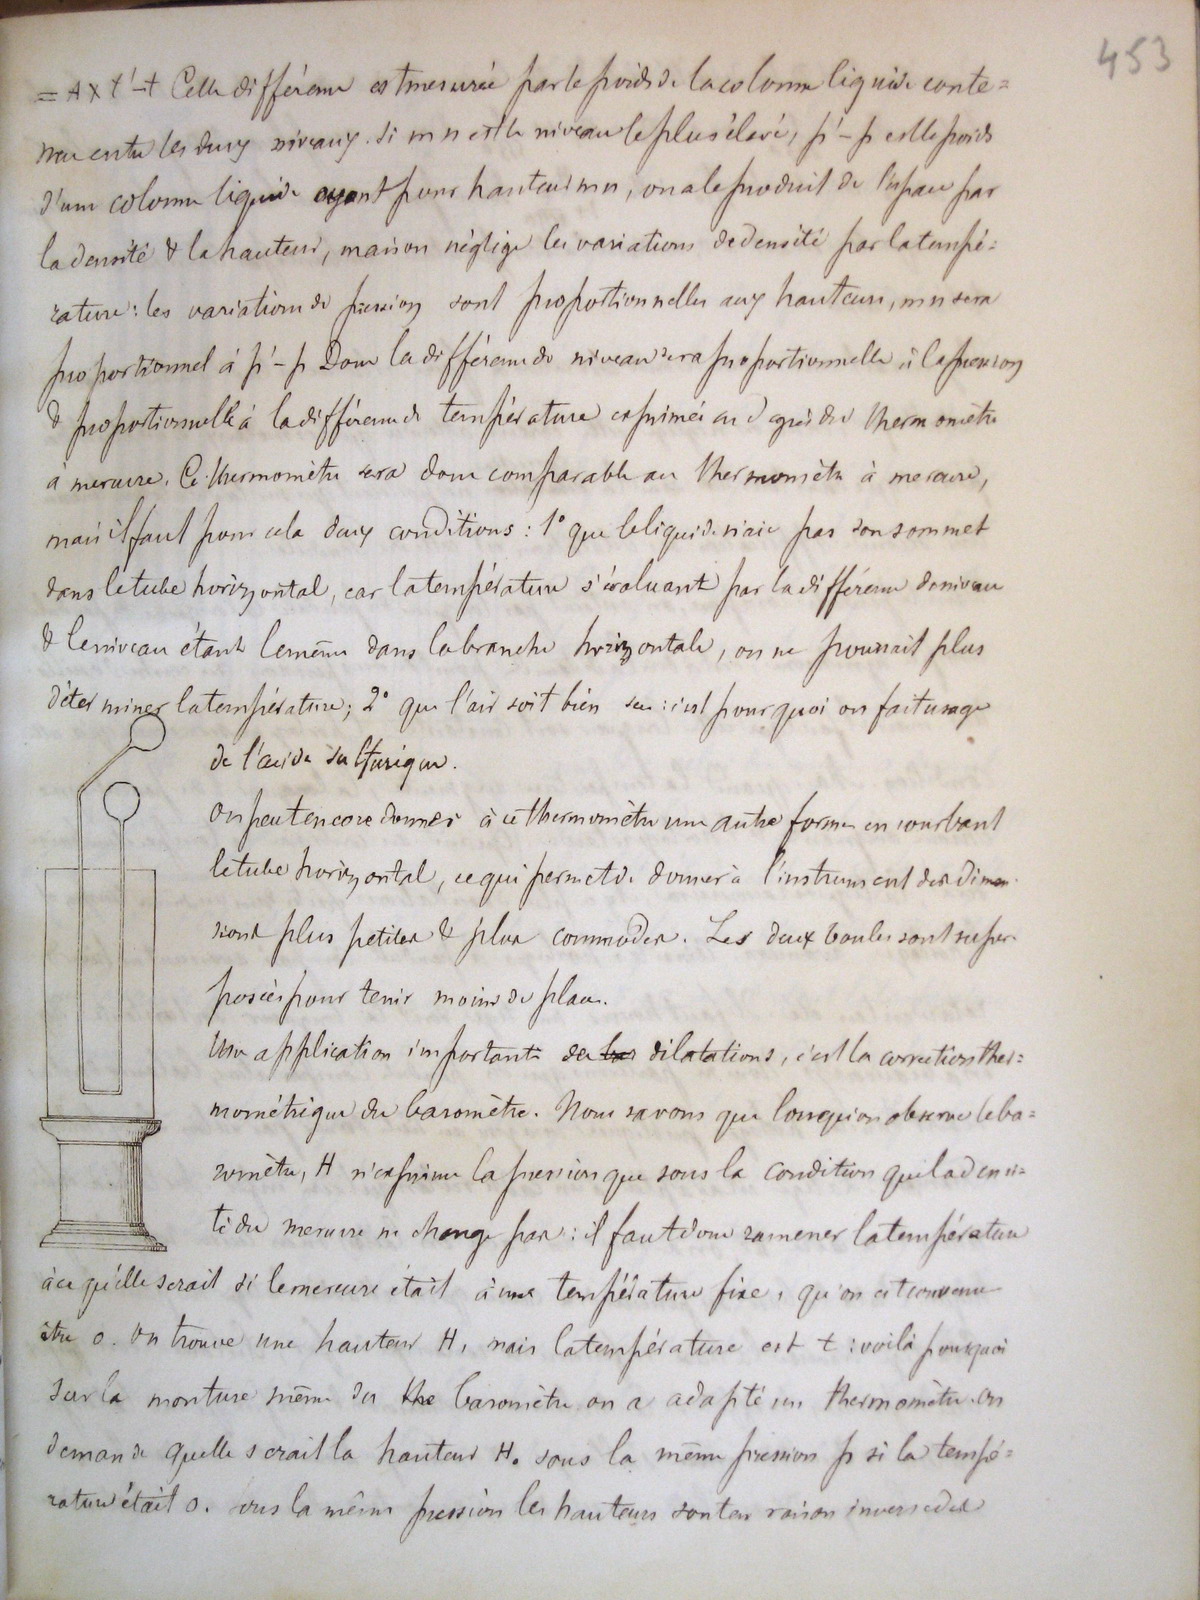 453
= A x t' - t Cette différence est mesurée par le poids de la colonne liquide conte=
nue entre les deux niveaux. Si m n est le niveau le plus élevé, p' - p est le poids
d'une colonne liquide ayant pour hauteur m n, on a le produit de l'espace par
la densité & la hauteur, mais on néglige les variations de densité par la tempé=
rature : les variations de pression sont proportionnelles aux hauteurs, m n sera
proportionnel à p' - p Donc la différence de niveau sera proportionnelle à la pression
& proportionnelle à la différence de température exprimée en degrés du thermomètre
à mercure. Ce thermomètre sera donc comparable au thermomètre à mercure,
mais il faut pour cela deux conditions : 1° que le liquide n'aie pas son sommet
dans le tube horizontal, car la température s'évaluant par la différence de niveau
& le niveau étant le même dans la branche horizontale, on ne pourrait plus
déterminer la température ; 2° que l'air soit bien sec : c'est pourquoi on fait usage
de l'acide sulfurique.
On peut encore donner à ce thermomètre une autre forme en courbant
le tube horizontal, ce qui permet de donner à l'instrument des dimen-
sions plus petites & plus commodes. Les deux boules sont super-
posées pour tenir moins de place.
Une application importante des dilatations, c'est la correction ther=
mométrique du baromètre. Nous savons que lorsqu'on observe le ba=
romètre, H n'exprime la pression que sous la condition que la densi=
té du mercure ne change pas : il faut donc ramener la température
à ce qu'elle serait si le mercure était à une température fixe, qu'on est convenu
être 0. On trouve une hauteur H, mais la température est t : voilà pourquoi
sur la monture même du baromètre on a adapté un thermomètre. On
demande quelle serait la hauteur H₀ sous la même pression p si la tempé=
rature était 0. Sous la même pression les hauteurs sont en raison inverse des